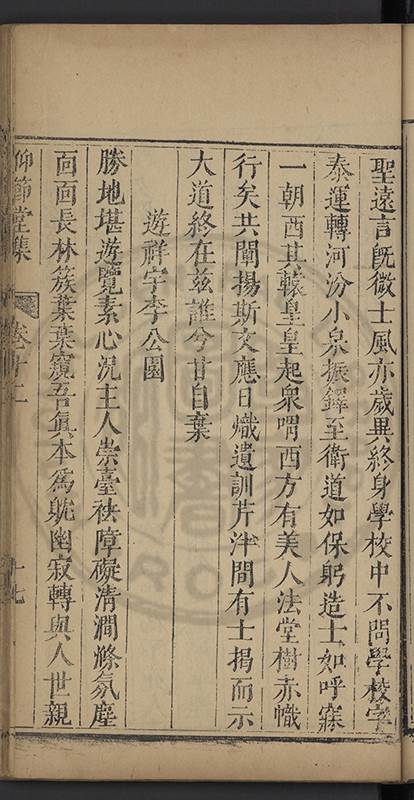 聖遠言既微士風亦歲異終身學校中不問學校字
泰運轉河汾小泉振鐸至衛道如保躬造士如呼寐
一朝西其轅皇皇起衆喟西方有美人法堂樹赤幟
行矣共闡揚斯文應日熾遺訓芹泮間有士揭而示
大道終在茲誰兮甘自棄
遊祥宇李公園
勝地堪遊覽素心況主人崇臺袪障礙清澗滌氛塵
面面長林簇葉葉窺吾眞本爲躭幽寂轉與人世親
仰節堂集
卷十二
十七